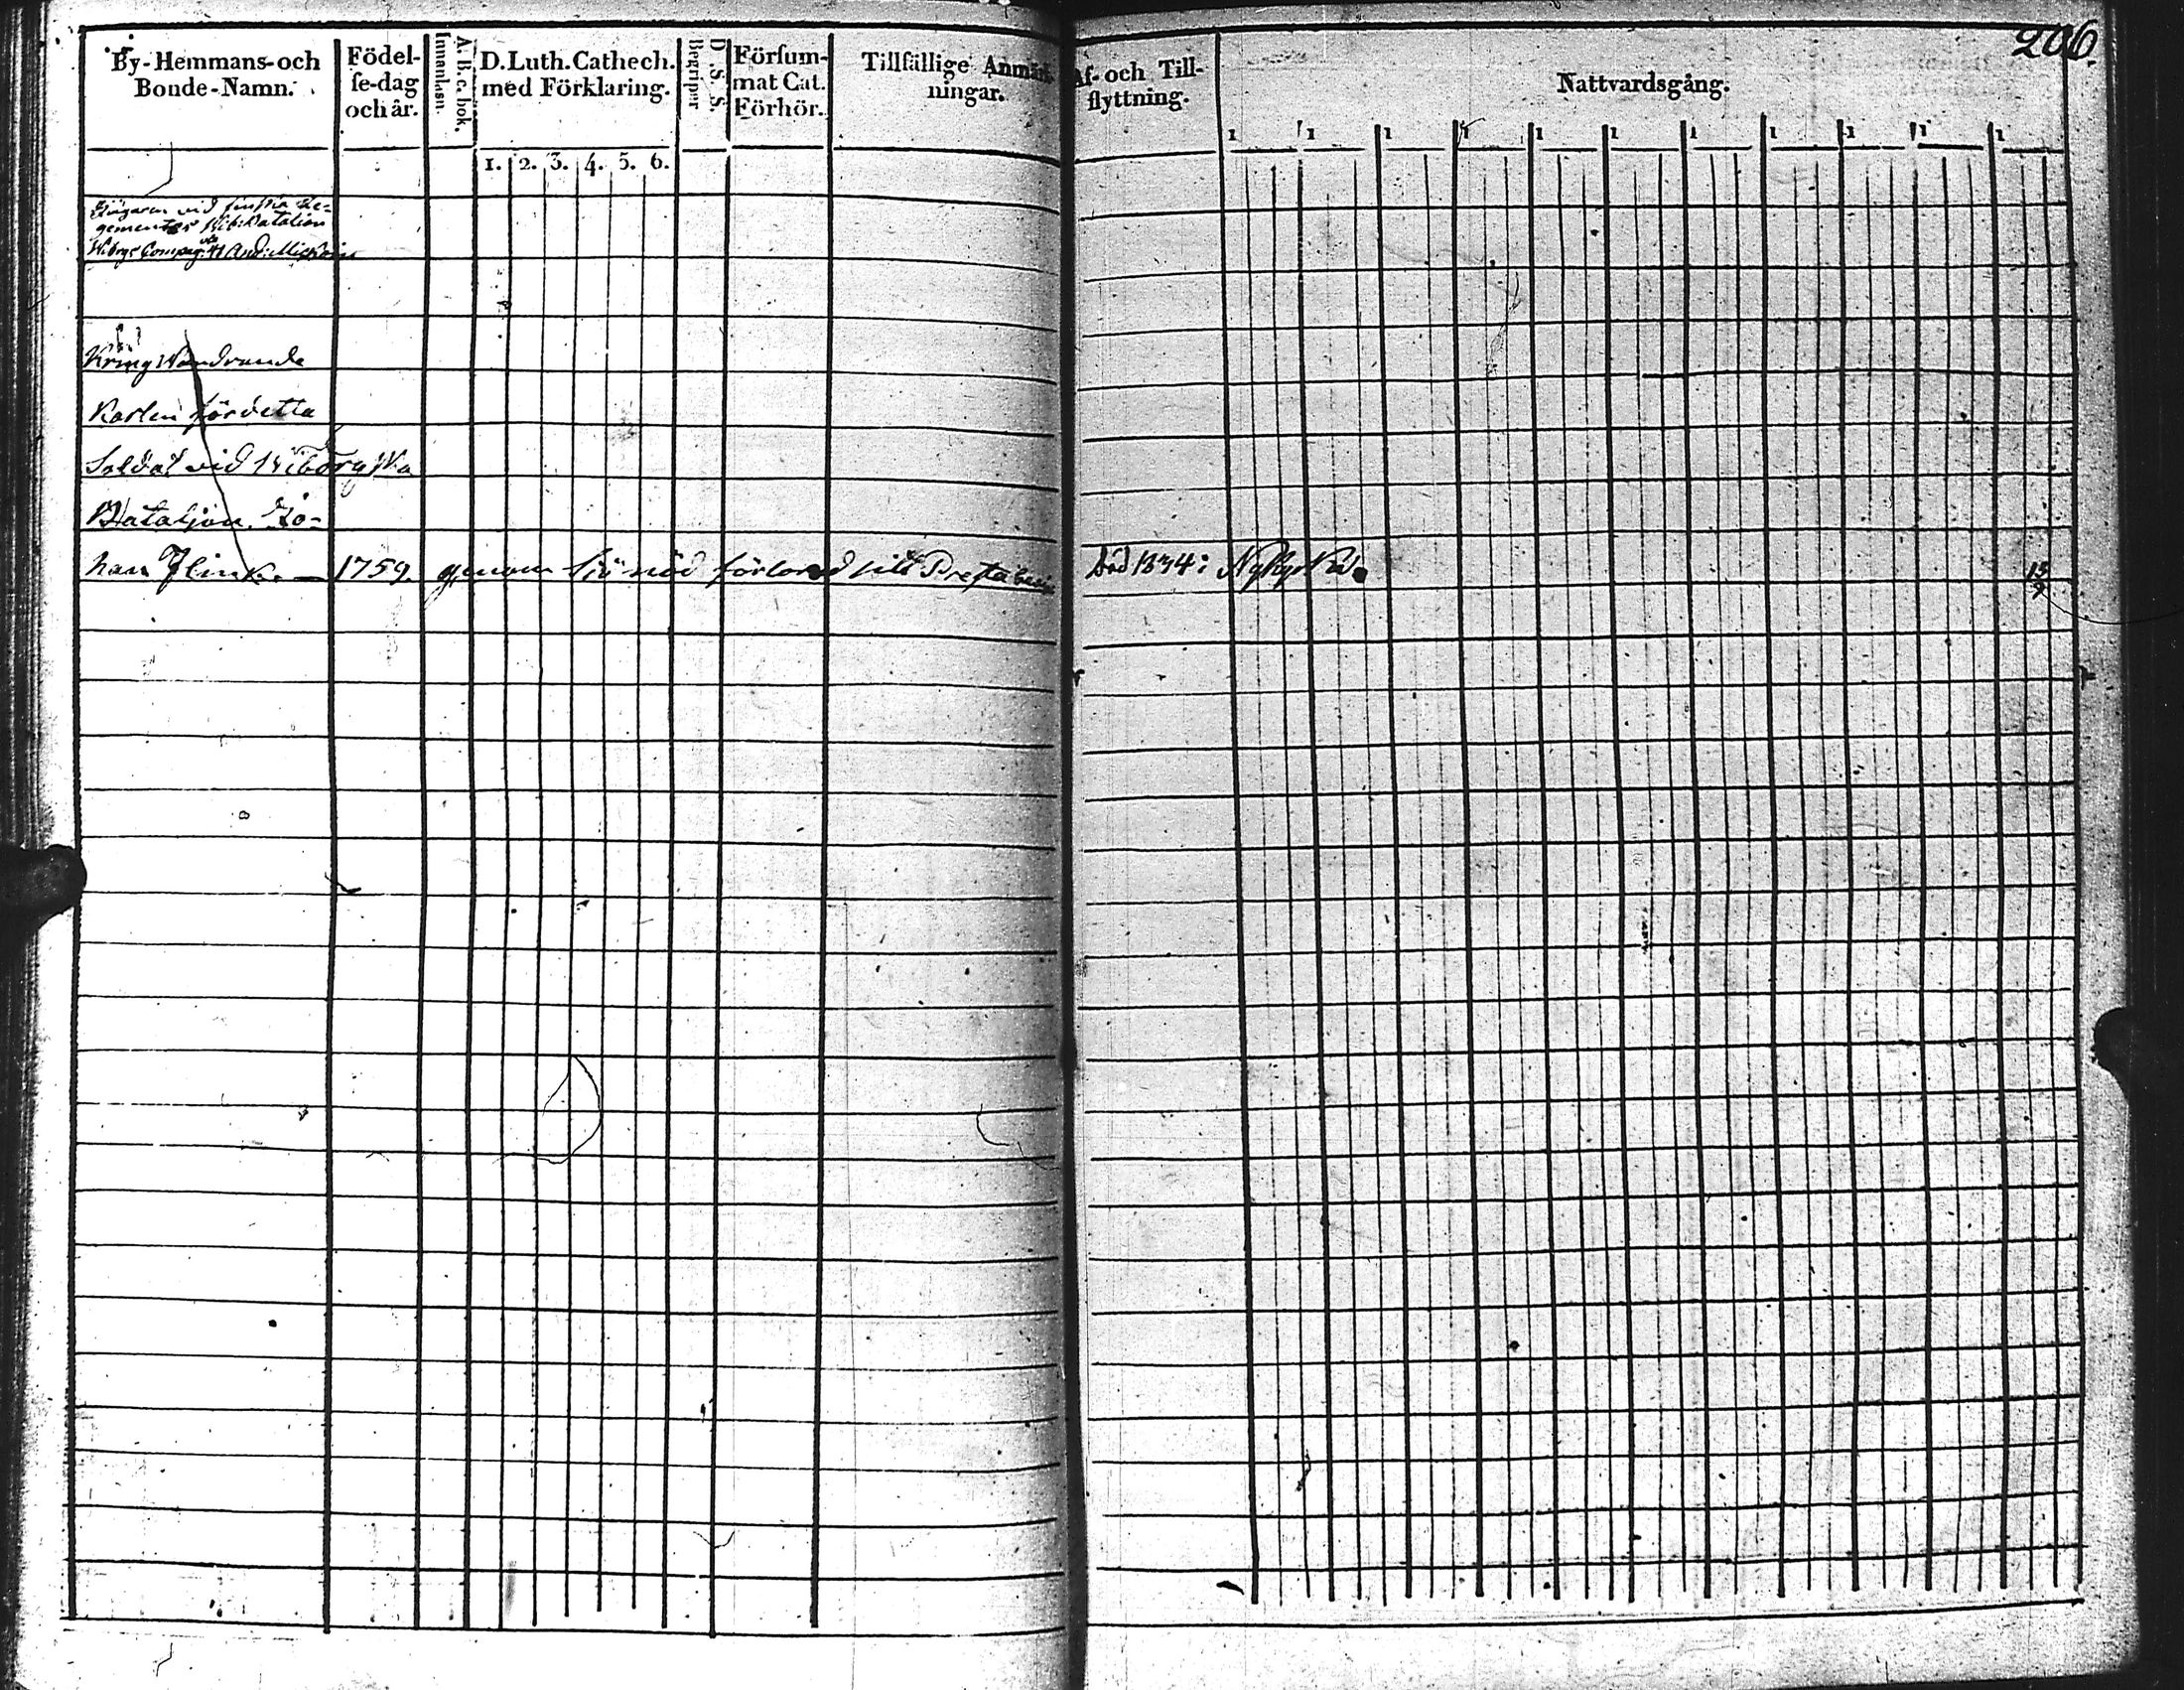 206.
By-Hemmans-och
Bonde-Namn.
Födel-
se-dag
och år.
A. B. c. bok.
Innanläsn.
D. Luth. Cathech.
med Förklaring.
1. 2. 3. 4. 5. 6.
D. S. S.
Begriper
Försum-
mat Cat.
Förhör.
Tillfällige Anmärk-
ningar.
Af- och Till-
flyttning.
Nattvardsgång.
1 1 1 1 1 1 1 1 1 1 1
vid finska Re-
gementes Wib: Batalion
Wiborgs Compag: And:
Kring Wandrande
Karlen fördetta
Soldat vid Wiborgska
Bataljon. Jo-
han Flink. — 1759. genom sjönöd förlorad sitt Prestabevis Död 1834 i Nykyrka. 15/9